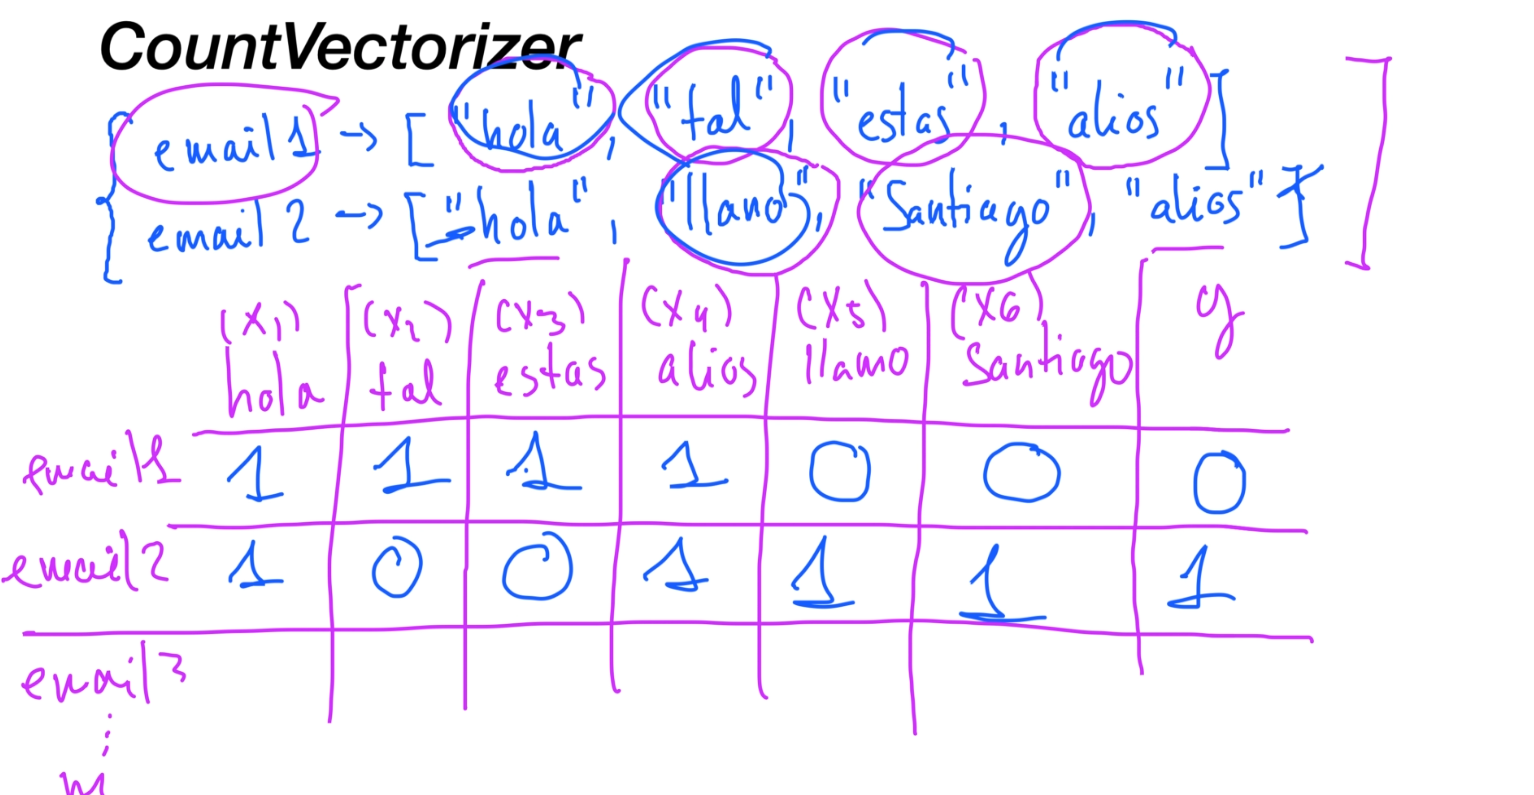 CountVectorizer
email1 -> ["hola", "tal", "estas", "alios"]
email2 -> ["hola", "llano", "Santiago", "alios"]]
(x1) (x2) (x3) (x4) (x5) (x6) y
hola tal estas alios llamo Santiago
email1 1 1 1 1 0 0 0
email2 1 0 0 1 1 1 1
email3
⋮
m